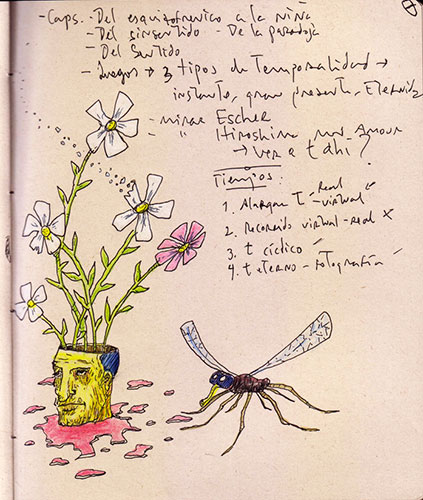 - Caps. - Del esquizofrenico a la niña
- Del sinsentido - De la paradoja
- Del Sentido
- Juegos → 3 tipos de temporalidad →
instante, gran presente, Eternidad
- mirar Escher
" Hiroshima mon Amour
→ ver a
Tiempos:
1. Alargar T - Real - virtual ✓
2. Recorrido virtual - real X
3. t cíclico ✓
4. t eterno - fotografía ✓